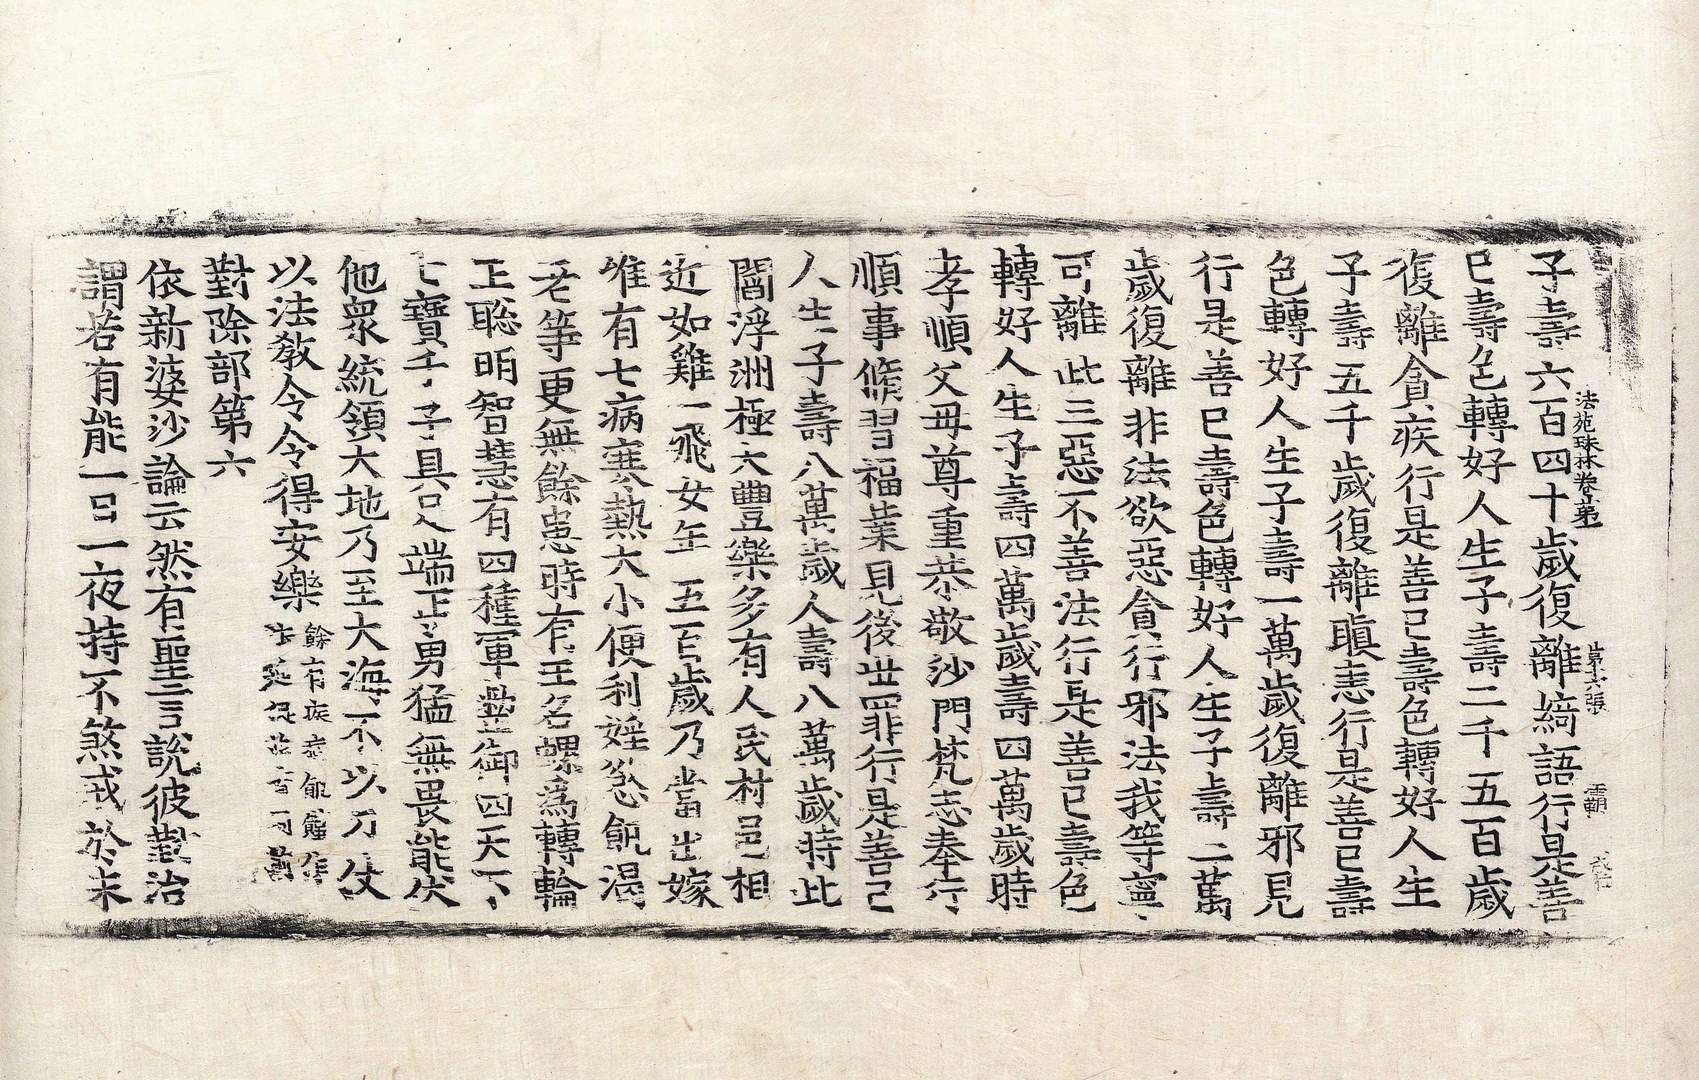 法苑珠林卷第一 第六張 覇
子壽六百四十歲復離綺語行是善
已壽色轉好人生子壽二千五百歲
復離貪疾行是善已壽色轉好人生
子壽五千歲復離瞋恚行是善已壽
色轉好人生子壽一萬歲復離邪見
行是善已壽色轉好人生子壽二萬
歲復離非法欲惡貪行邪法我等寧
可離此三惡不善法行是善已壽色
轉好人生子壽四萬歲壽四萬歲時
孝順父母尊重恭敬沙門梵志奉行
順事脩習福業見後世罪行是善已
人生子壽八萬歲人壽八萬歲時此
閻浮洲極大豐樂多有人民村邑相
近如雞一飛女年五百歲乃當出嫁
唯有七病寒熱大小便利婬慾飢渴
老等更無餘患時有王名螺爲轉輪
王聡明智慧有四種軍整御四天下
七寶千子具足端正勇猛無畏能伏
他衆統領大地乃至大海不以刀仗
以法敎令令得安樂 餘有疾病飢饉
對除部第六
依新婆沙論云然有聖言說彼對治
謂若有能一日一夜持不煞戒於未